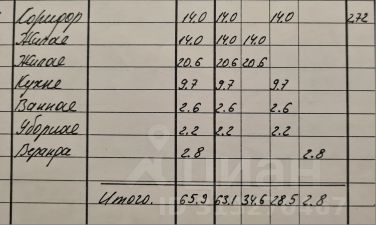 Коридор 14.0 14.0 14.0 2.72
Жилая 14.0 14.0 14.0
Жилая 20.6 20.6 20.6
Кухня 9.7 9.7 9.7
Ванная 2.6 2.6 2.6
Уборная 2.2 2.2 2.2
Веранда 2.8 2.8
Итого. 65.9 63.1 34.6 28.5 2.8
циан